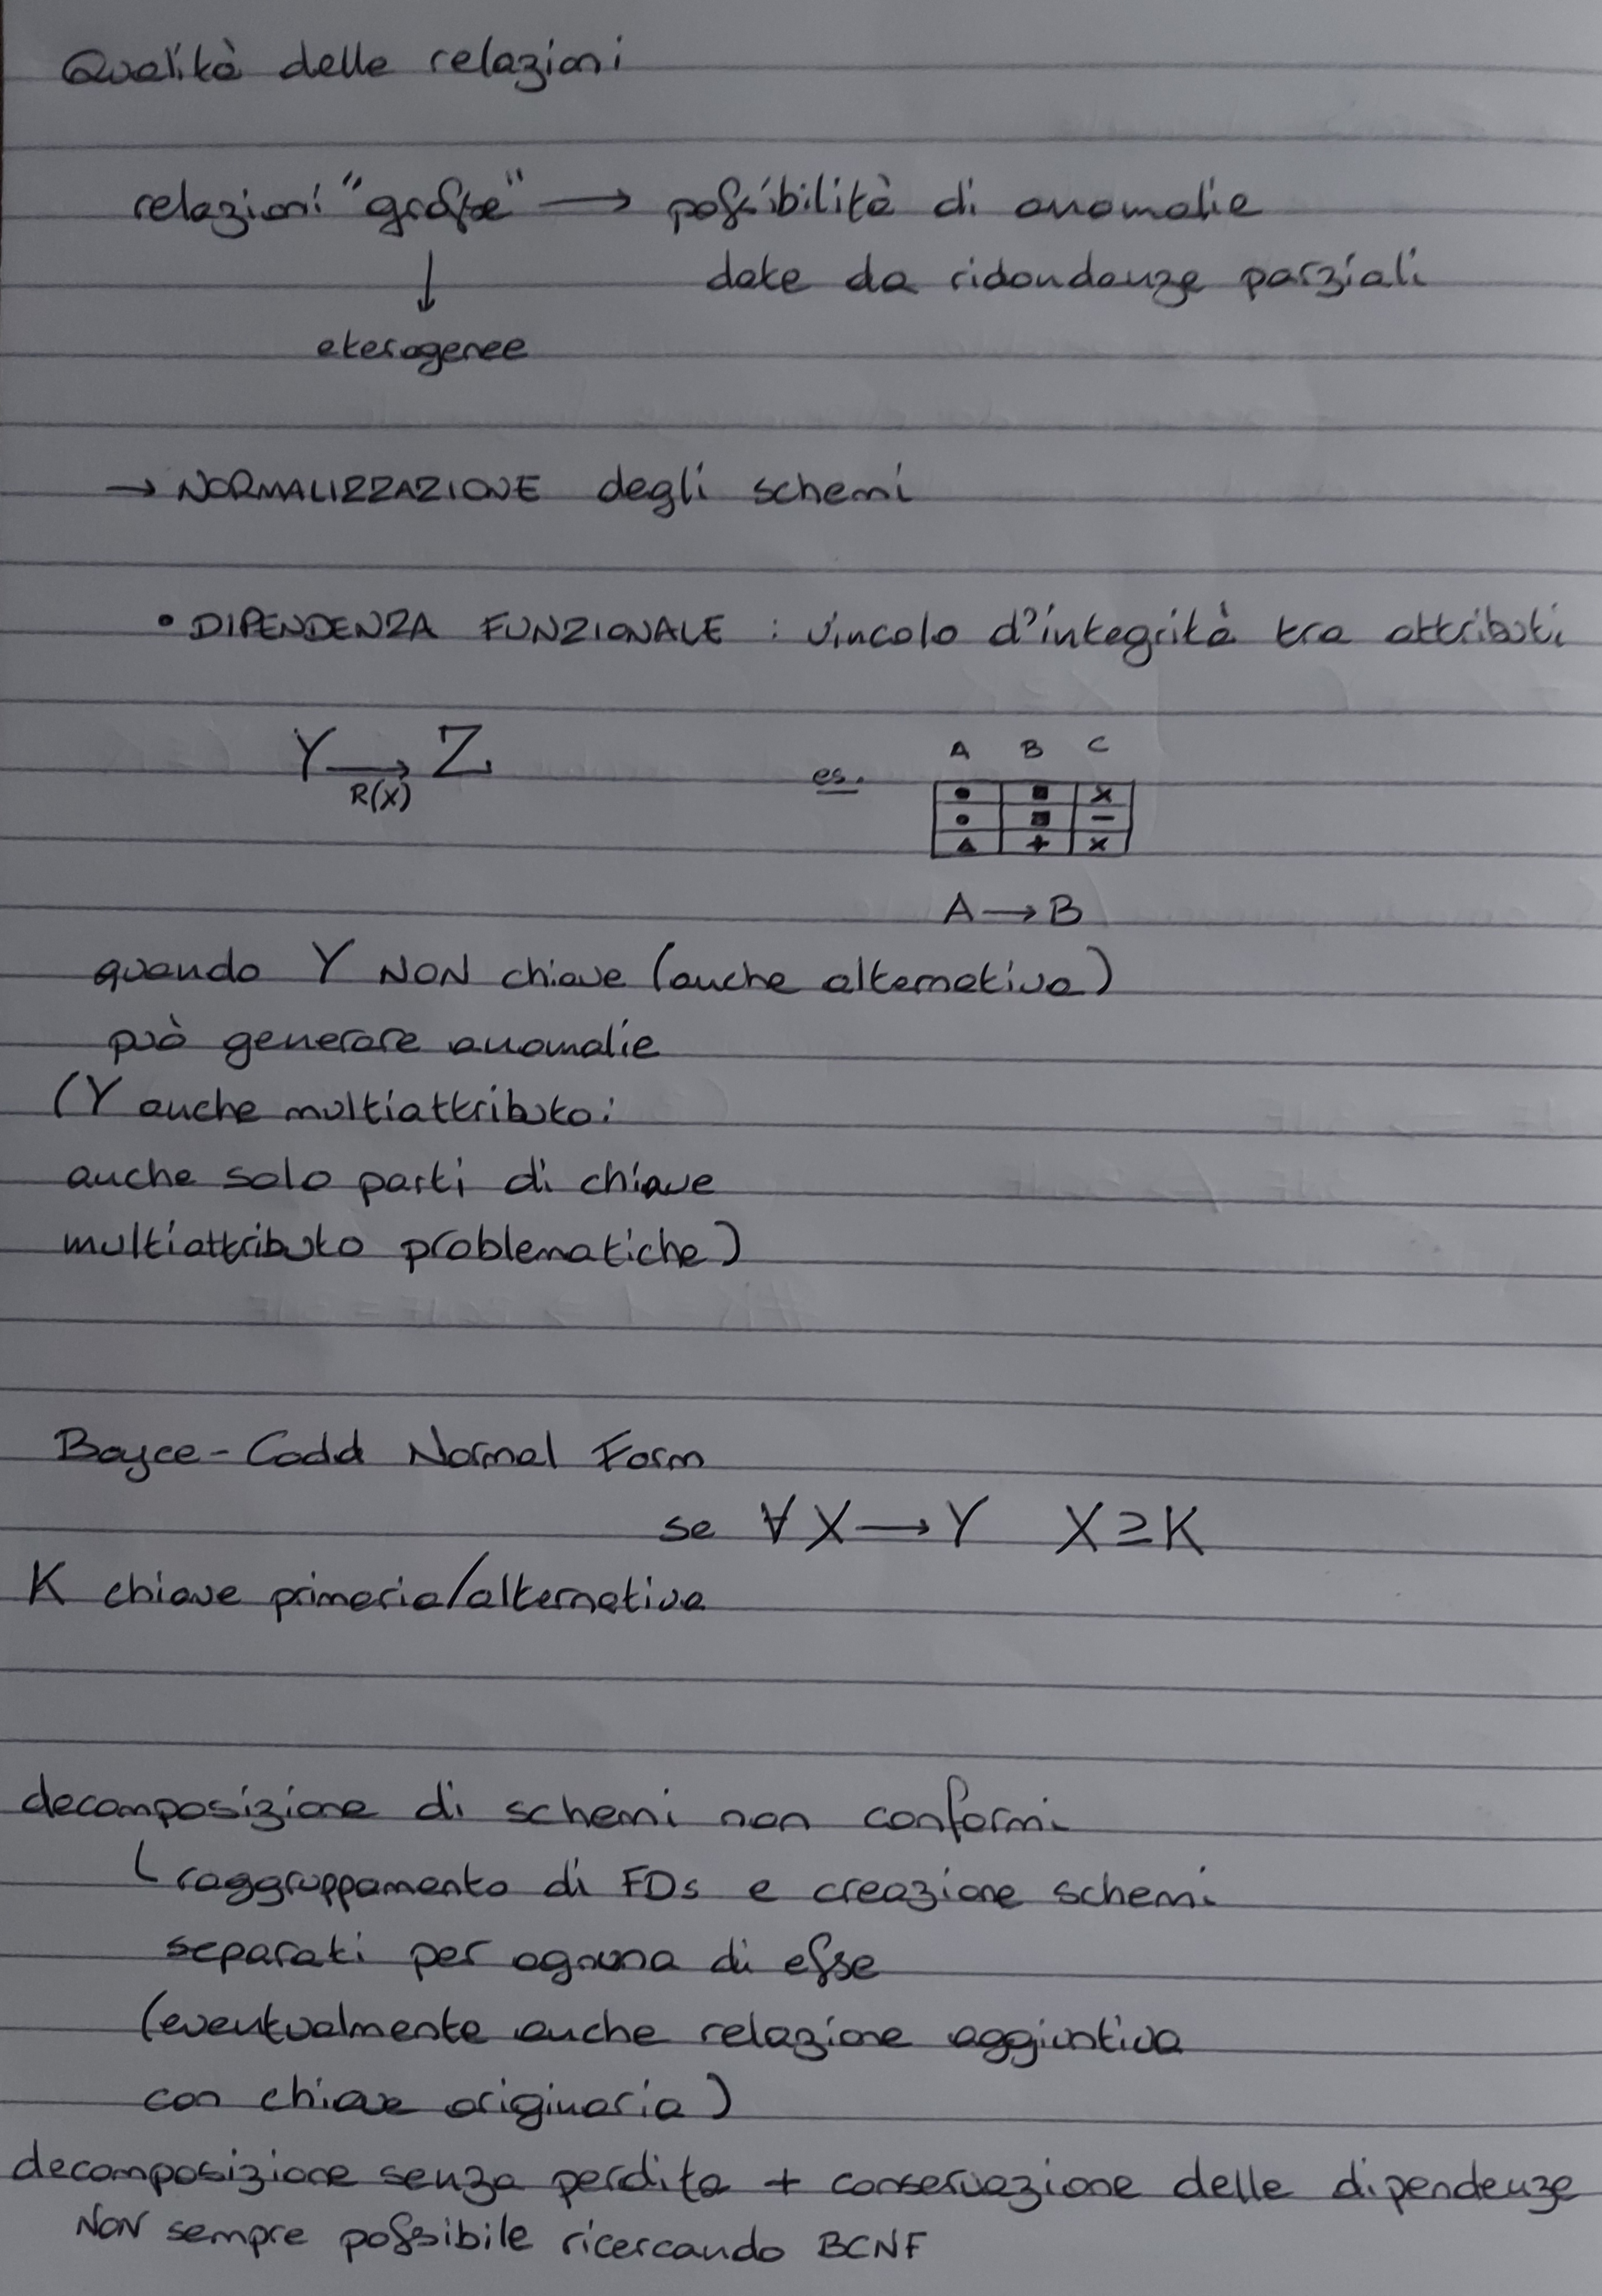 Qualità delle relazioni
relazioni "grosse" → possibilità di anomalie
date da ridondanze parziali
↓
eterogenee
→ NORMALIZZAZIONE degli schemi
• DIPENDENZA FUNZIONALE : vincolo d'integrità tra attributi
Y → Z
R(X)
es.
A B C
• ■ x
• ■ –
▲ + x
A → B
quando Y NON chiave (anche alternativa)
può generare anomalie
(Y anche multiattributo:
anche solo parti di chiave
multiattributo problematiche)
Boyce-Codd Normal Form
se ∀ X → Y X ⊇ K
K chiave primaria/alternativa
decomposizione di schemi non conformi
└ raggruppamento di FDs e creazione schemi
separati per ognuna di esse
(eventualmente anche relazione aggiuntiva
con chiave originaria)
decomposizione senza perdita + conservazione delle dipendenze
NON sempre possibile ricercando BCNF